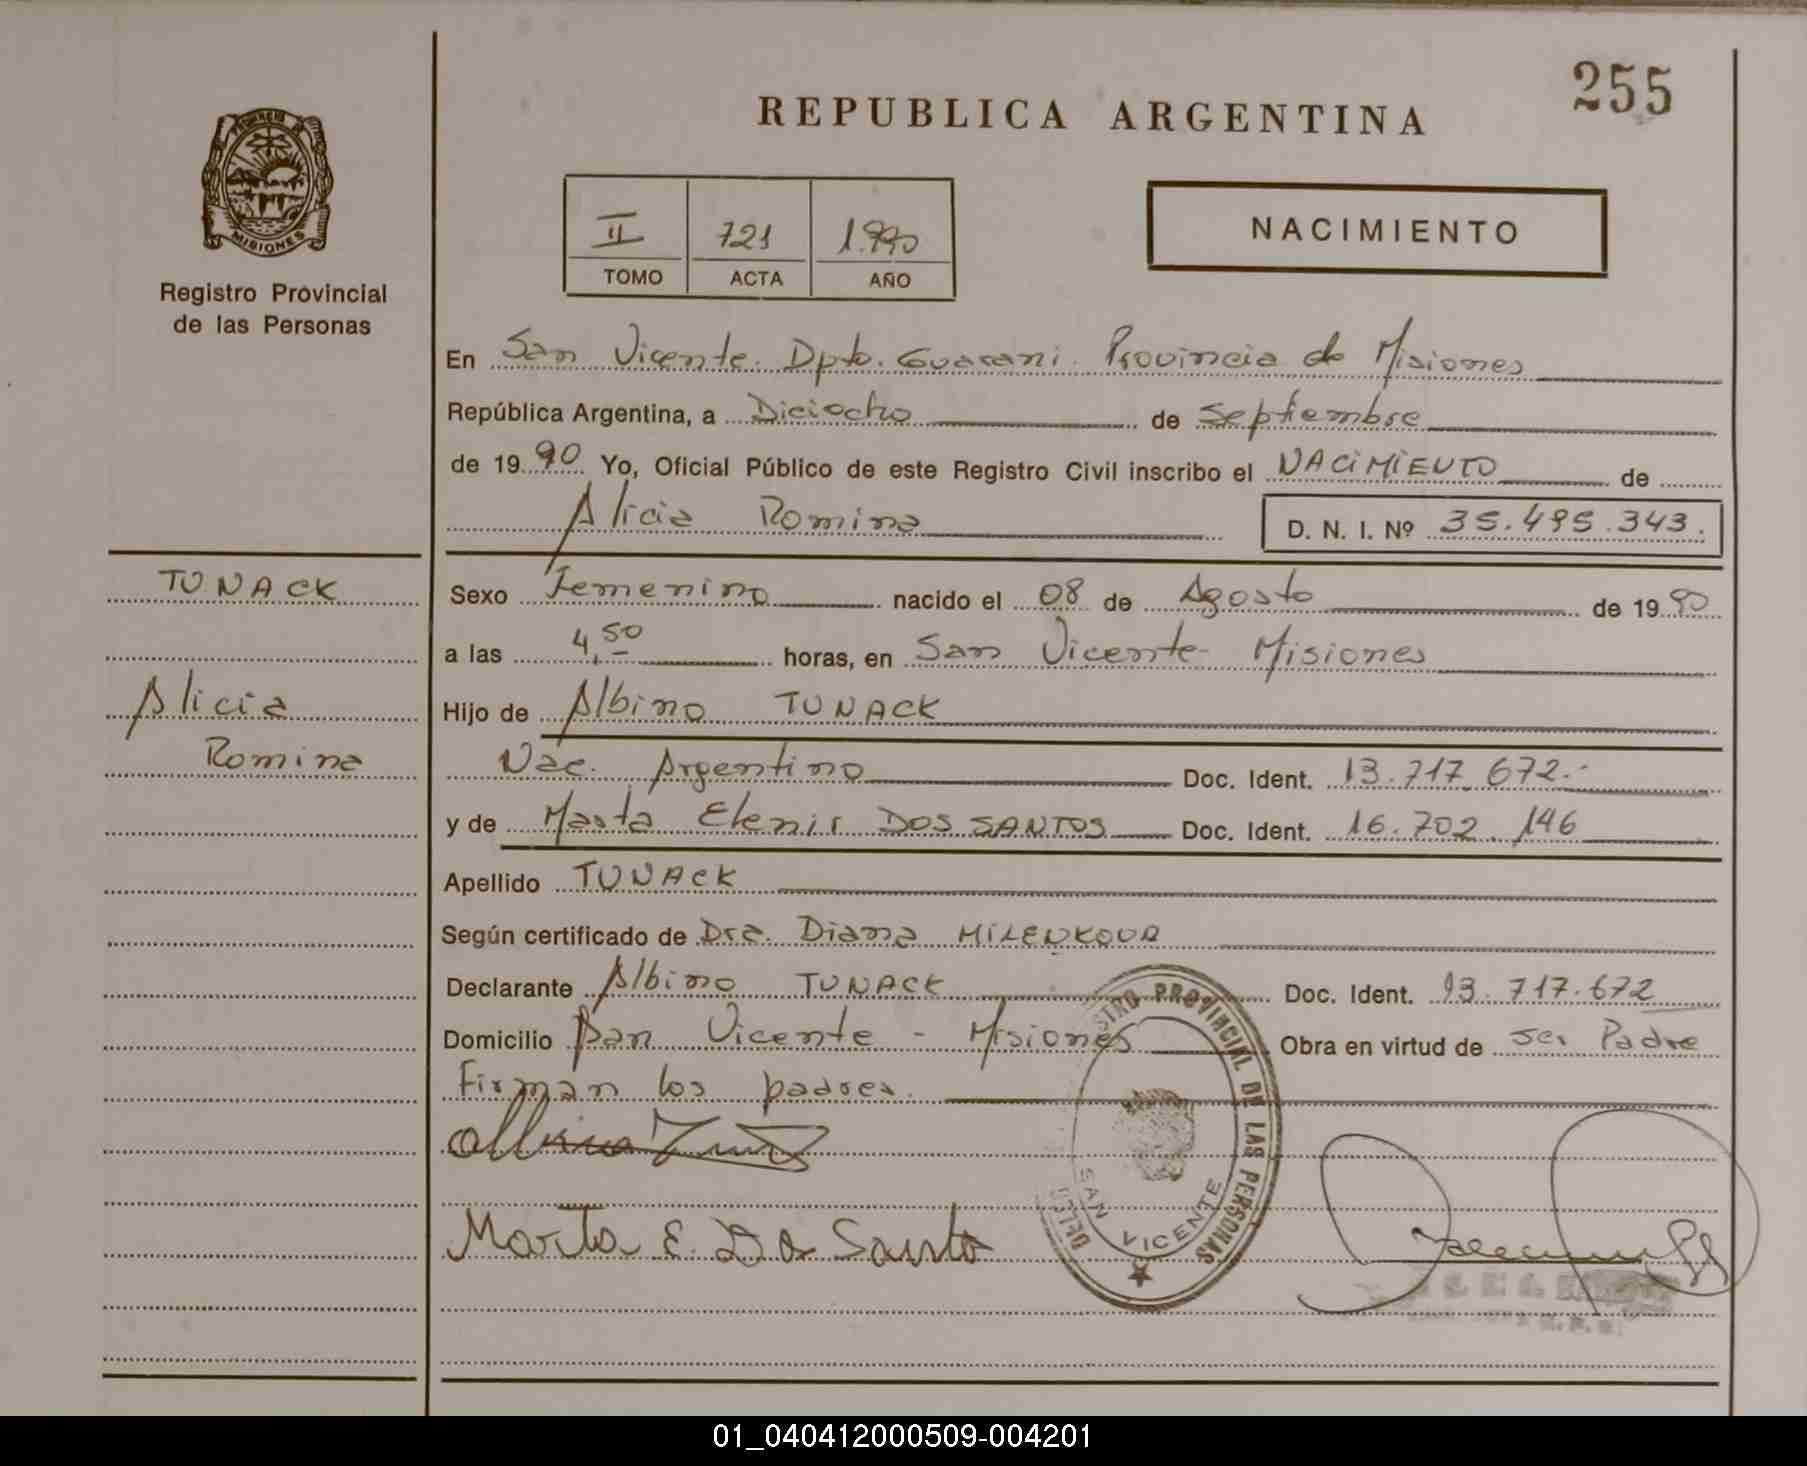 255
REPUBLICA ARGENTINA
PROVINCIA DE
MISIONES
Registro Provincial
de las Personas
II 721 1.990
TOMO ACTA AÑO
NACIMIENTO
En San Vicente. Dpto. Guarani. Provincia de Misiones
República Argentina, a Dieciocho de Septiembre
de 1990 Yo, Oficial Público de este Registro Civil inscribo el NACIMIENTO de
Alicia Romina D. N. I. Nº 35.495.343.
TUNACK
Alicia
Romina
Sexo Femenino nacido el 08 de Agosto de 1990
a las 4,50 horas, en San Vicente- Misiones
Hijo de Albino TUNACK
Nac. Argentino Doc. Ident. 13.717.672.-
y de Marta Elenir DOS SANTOS Doc. Ident. 16.702.146
Apellido TUNACK
Según certificado de Dra. Diana MILENKOVA
Declarante Albino TUNACK Doc. Ident. 13.717.672
Domicilio San Vicente - Misiones Obra en virtud de ser Padre
Firman los padres.
Marta E. Do Santo
REGISTRO PROVINCIAL DE LAS PERSONAS
SAN VICENTE
01_040412000509-004201